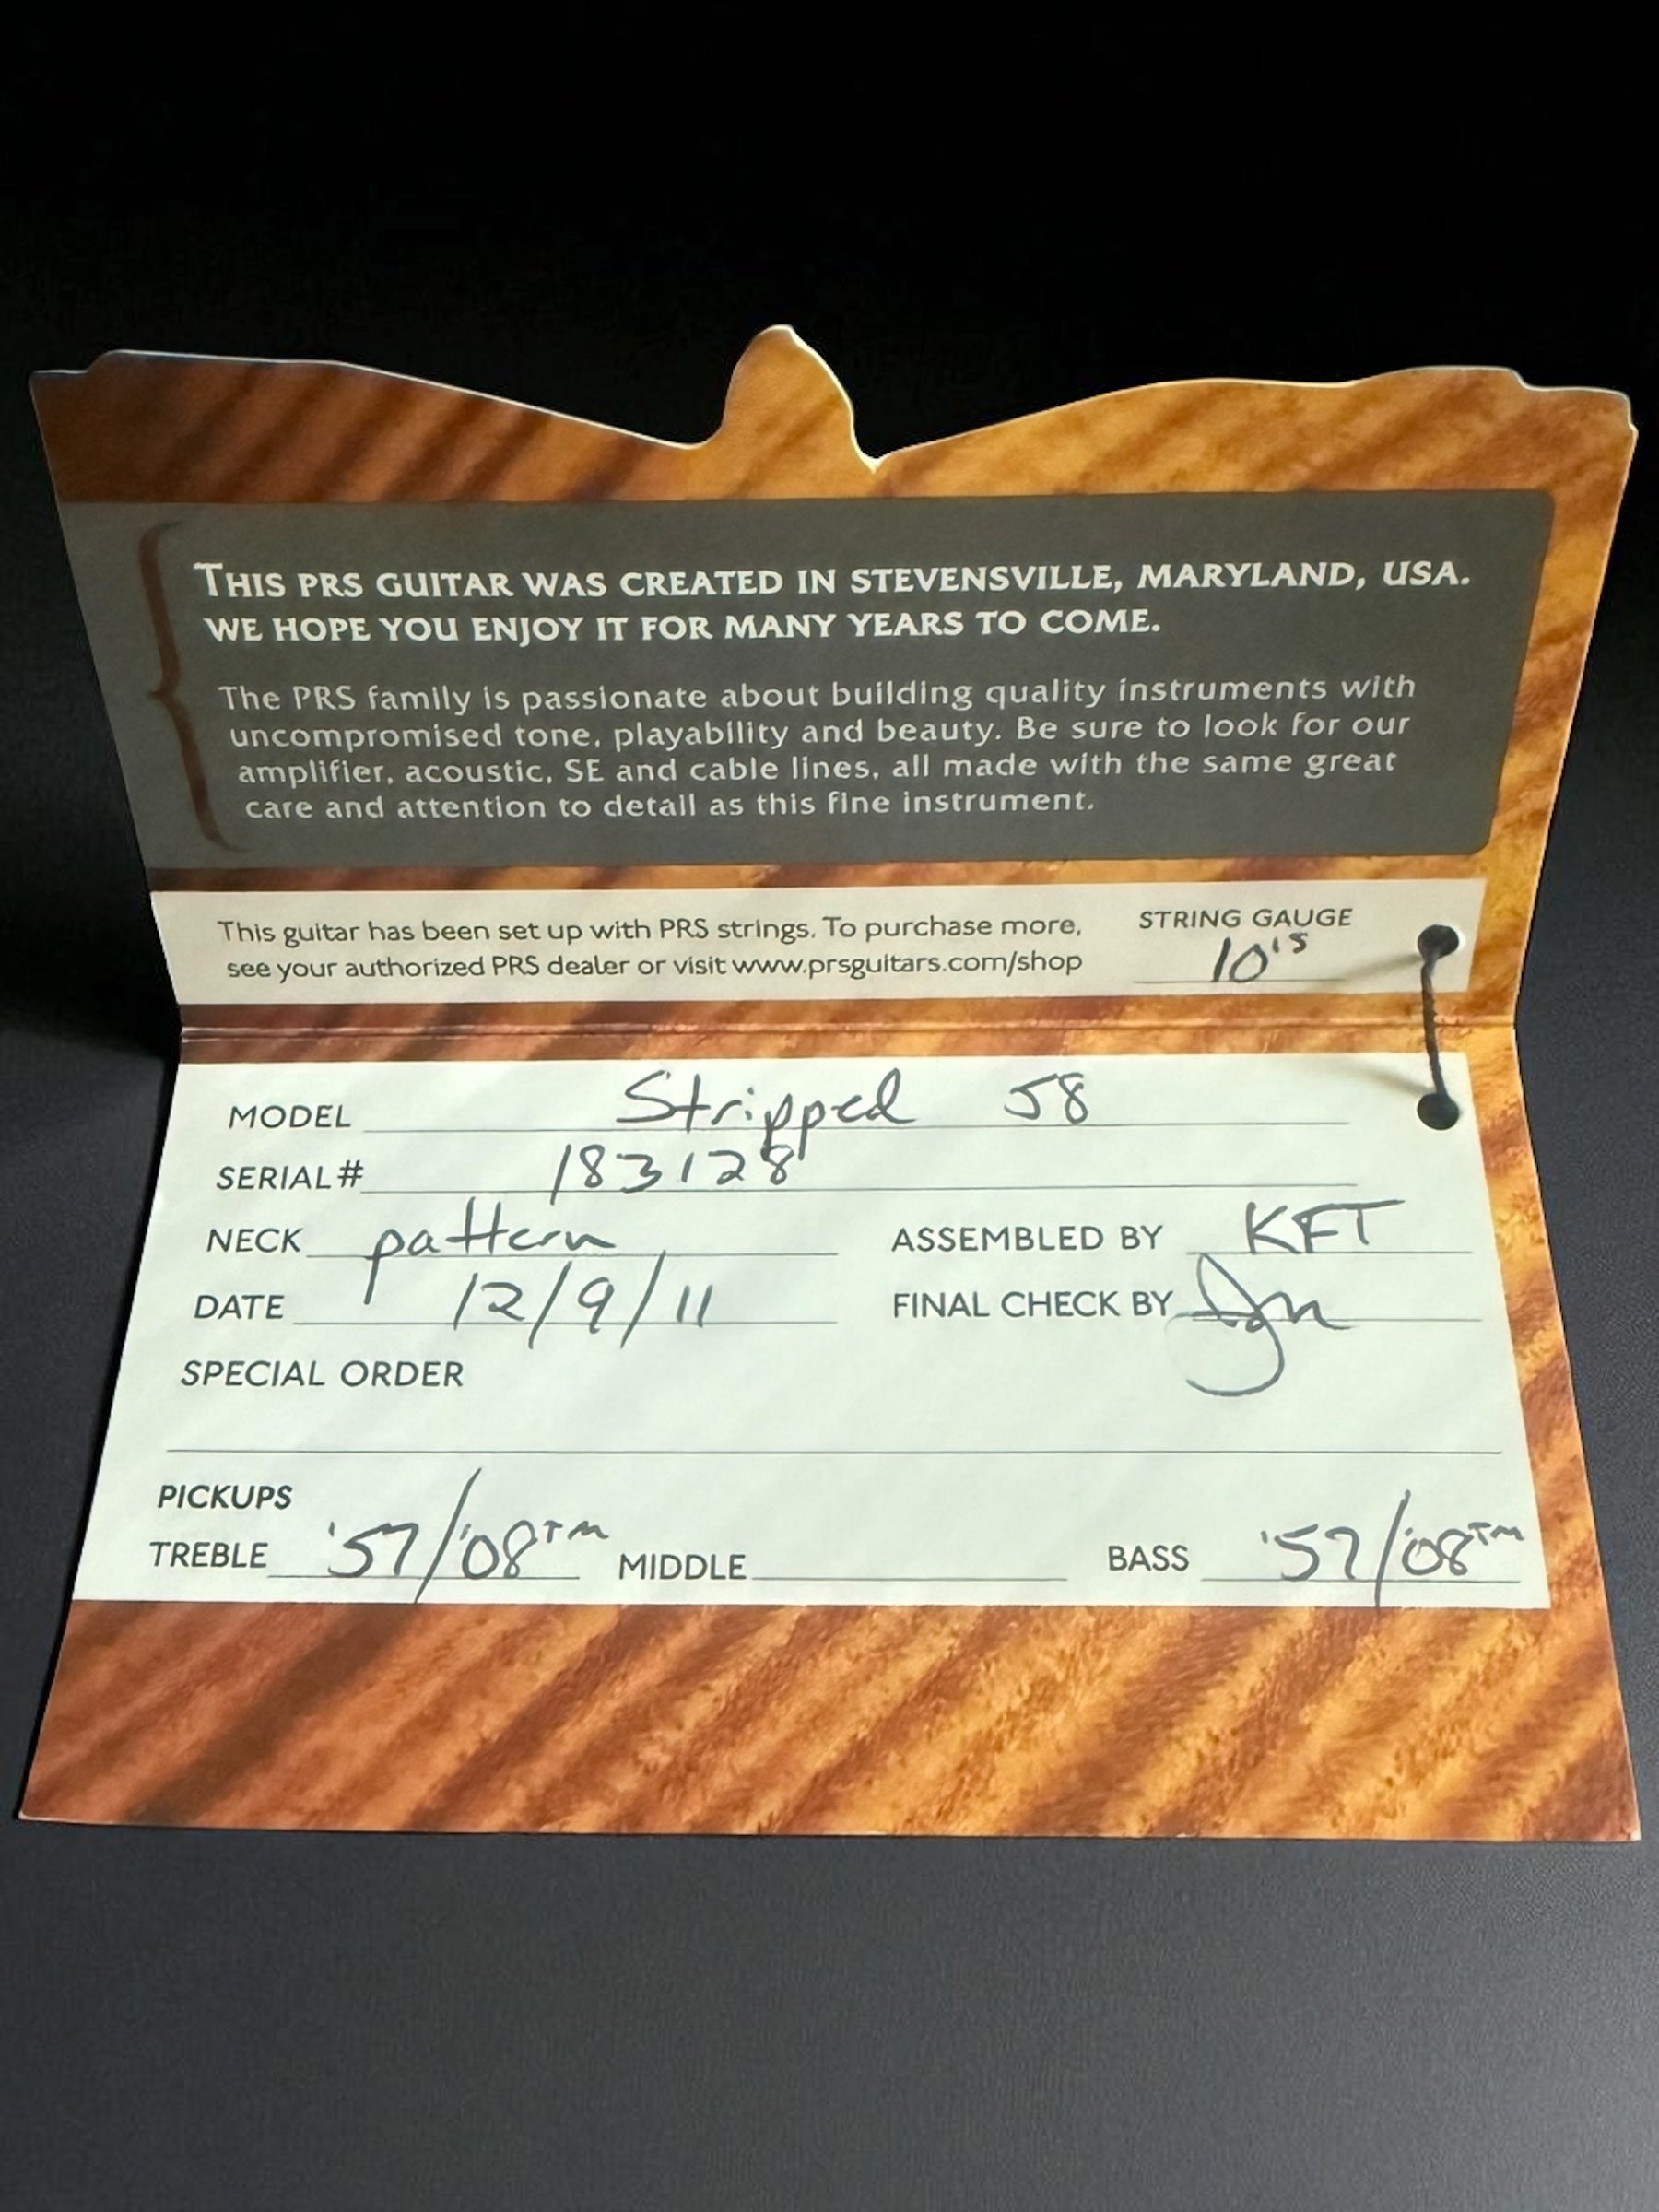 THIS PRS GUITAR WAS CREATED IN STEVENSVILLE, MARYLAND, USA.
WE HOPE YOU ENJOY IT FOR MANY YEARS TO COME.
The PRS family is passionate about building quality instruments with
uncompromised tone, playability and beauty. Be sure to look for our
amplifier, acoustic, SE and cable lines, all made with the same great
care and attention to detail as this fine instrument.
This guitar has been set up with PRS strings. To purchase more,
see your authorized PRS dealer or visit www.prsguitars.com/shop
STRING GAUGE
10's
MODEL Stripped 58
SERIAL# 183128
NECK pattern ASSEMBLED BY KFT
DATE 12/9/11 FINAL CHECK BY
SPECIAL ORDER
PICKUPS
TREBLE '57/'08™ MIDDLE BASS '57/'08™